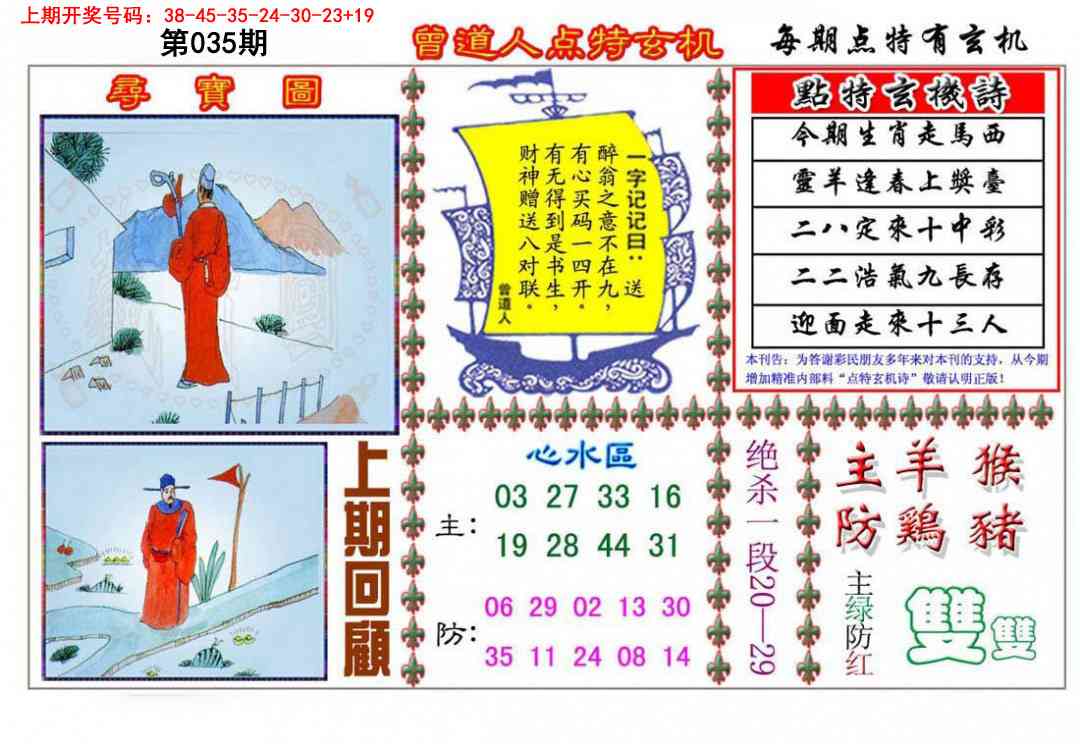 上期开奖号码：38-45-35-24-30-23+19
第035期
曾道人点特玄机
每期点特有玄机
尋寶圖
一字记记曰：送
醉翁之意不在九，
有心买码一四开。
有无得到是书生，
财神赠送八对联。
曾道人
點特玄機詩
今期生肖走馬西
靈羊逢春上獎臺
二八定來十中彩
二二浩氣九長存
迎面走來十三人
本刊告：为答谢彩民朋友多年来对本刊的支持，从今期
增加精准内部料“点特玄机诗”敬请认明正版！
上期回顧
心水區
主：
03 27 33 16
19 28 44 31
防：
06 29 02 13 30
35 11 24 08 14
绝杀一段20—29
主羊猴
防鷄豬
主绿防红
雙雙